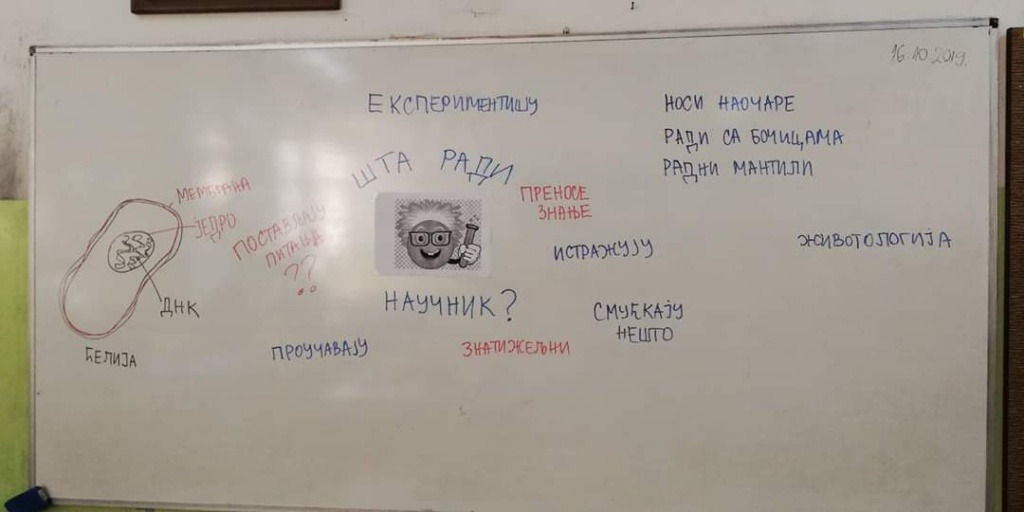 16.10.2019.
ЕКСПЕРИМЕНТИШУ
НОСИ НАОЧАРЕ
РАДИ СА БОЧИЦАМА
РАДНИ МАНТИЛИ
ШТА РАДИ
НАУЧНИК?
ПРЕНОСЕ
ЗНАЊЕ
МЕМБРАНА
ЈЕДРО
ДНК
ЋЕЛИЈА
ПОСТАВЉАЈУ
ПИТАЊА
??
ИСТРАЖУЈУ
ЖИВОТОЛОГИЈА
СМУЋКАЈУ
НЕШТО
ПРОУЧАВАЈУ
ЗНАТИЖЕЉНИ